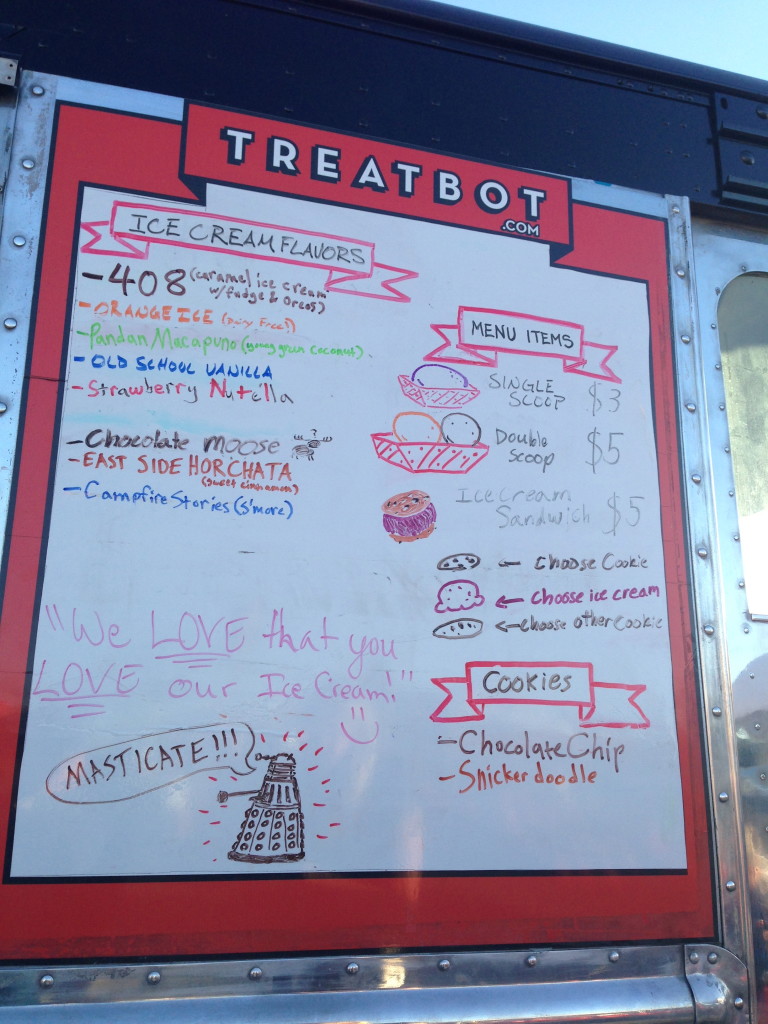 TREATBOT
.COM
ICE CREAM FLAVORS
-408 (caramel ice cream
w/fudge & Oreos)
-ORANGE ICE (Dairy Free!)
-Pandan Macapuno (young green coconut)
-OLD SCHOOL VANILLA
-Strawberry Nutella
-Chocolate moose
-EAST SIDE HORCHATA
(sweet cinnamon)
-Campfire Stories (S'more)
"We LOVE that you
LOVE our Ice Cream!"
MASTICATE!!!
MENU ITEMS
SINGLE
SCOOP $3
Double
Scoop $5
Ice Cream
Sandwich $5
← Choose Cookie
← Choose ice cream
← Choose other Cookie
Cookies
-Chocolate Chip
-Snickerdoodle